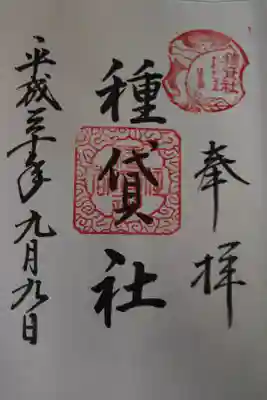 奉拝
種貸社
平成三十年九月九日